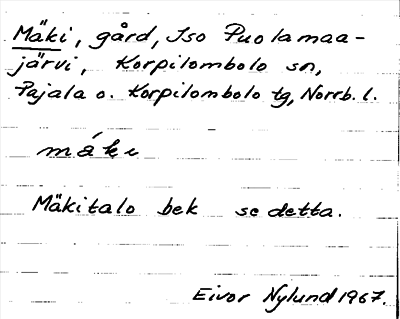 Mäki, gård, Iso Puolamaa-
järvi, Korpilombolo sn,
Pajala o. Korpilombolo tg, Norrb. l.
máki
Mäkitalo bek se detta.
Eivor Nylund 1967.